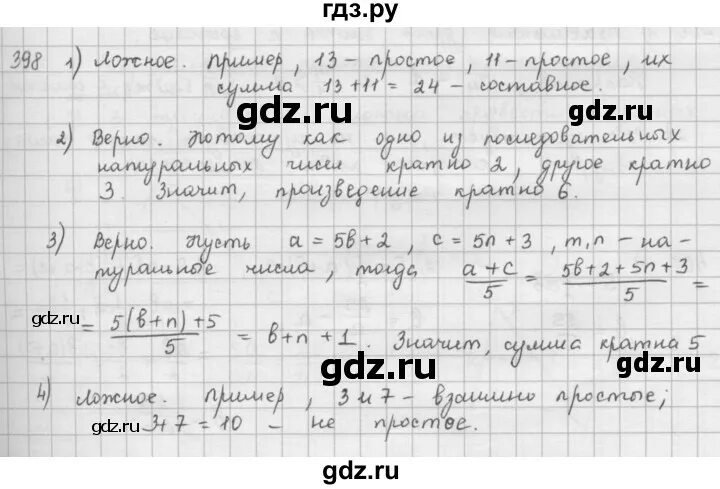 гдз.ру
398 1) Ложное. Пример, 13 - простое, 11 - простое, их
сумма 13 + 11 = 24 - составное.
gdz.ru
gdz.ru
2) Верно. Потому как одно из последовательных
натуральных чисел кратно 2, другое кратно
3. Значит, произведение кратно 6.
gdz.ru
3) Верно. Пусть a = 5в + 2, c = 5n + 3, m, n - на-
туральные числа, тогда (a + c)/5 = (5в + 2 + 5n + 3)/5 =
gdz.ru
= (5(в + n) + 5)/5 = в + n + 1. Значит, сумма кратна 5
gdz.ru
4) Ложное. Пример, 3 и 7 - взаимно простые;
3 + 7 = 10 - не простое.
gdz.ru
gdz.ru
gdz.ru